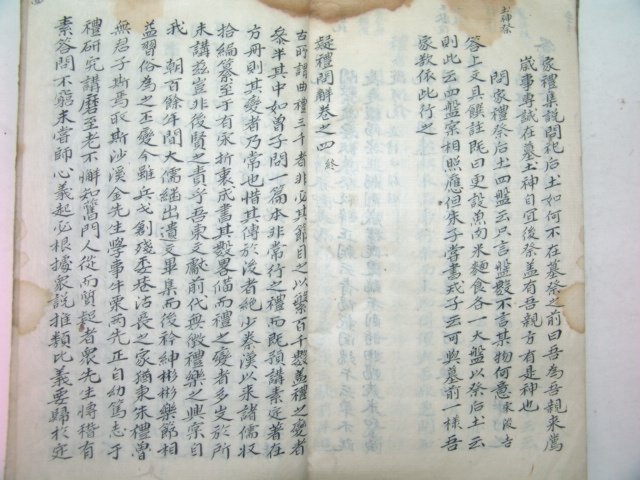 土神祭
家禮集說問祀后土如何不在墓祭之前曰吾為吾親來薦
歲事專誠在墓土神自宜後祭盖有吾親方有是神也
問家禮祭后土四盤云只言盤數不言某物何意
答上文具饌註既曰更設魚肉米麵食各一大盤以祭后土云
則此云四盤宗相照應但朱子嘗書戒子云可與墓前一樣吾
家欲依此行之
疑禮問解卷之四 終
古所謂曲禮三千者非必其節目之以繁百千數盖禮之變者
參半其中如曾子問一篇本非常行之禮而既預講素定著在
方冊則其變者乃常也惜其傳於後者絶少秦漢以來諸儒收
拾編纂至于有宋折衷成書其數略備而禮之變者多定於所
未講茲豈非後賢之責乎吾東文獻前代無徵禮樂之興宗自
我 朝百餘年間大儒継出遺文畢集而後衿紳彬彬樂節相
益習俗為之丕變今雖兵戈創殘委巷沽畏之家猶秉朱禮魯
無君子斯焉取斯沙溪金先生學事牛栗兩先正自幼篤志于
禮研究講磨至老不懈知舊門人從而質起者衆先生博稽有
素答問不窮未嘗師心義起必根據衆說推類比義要歸於定